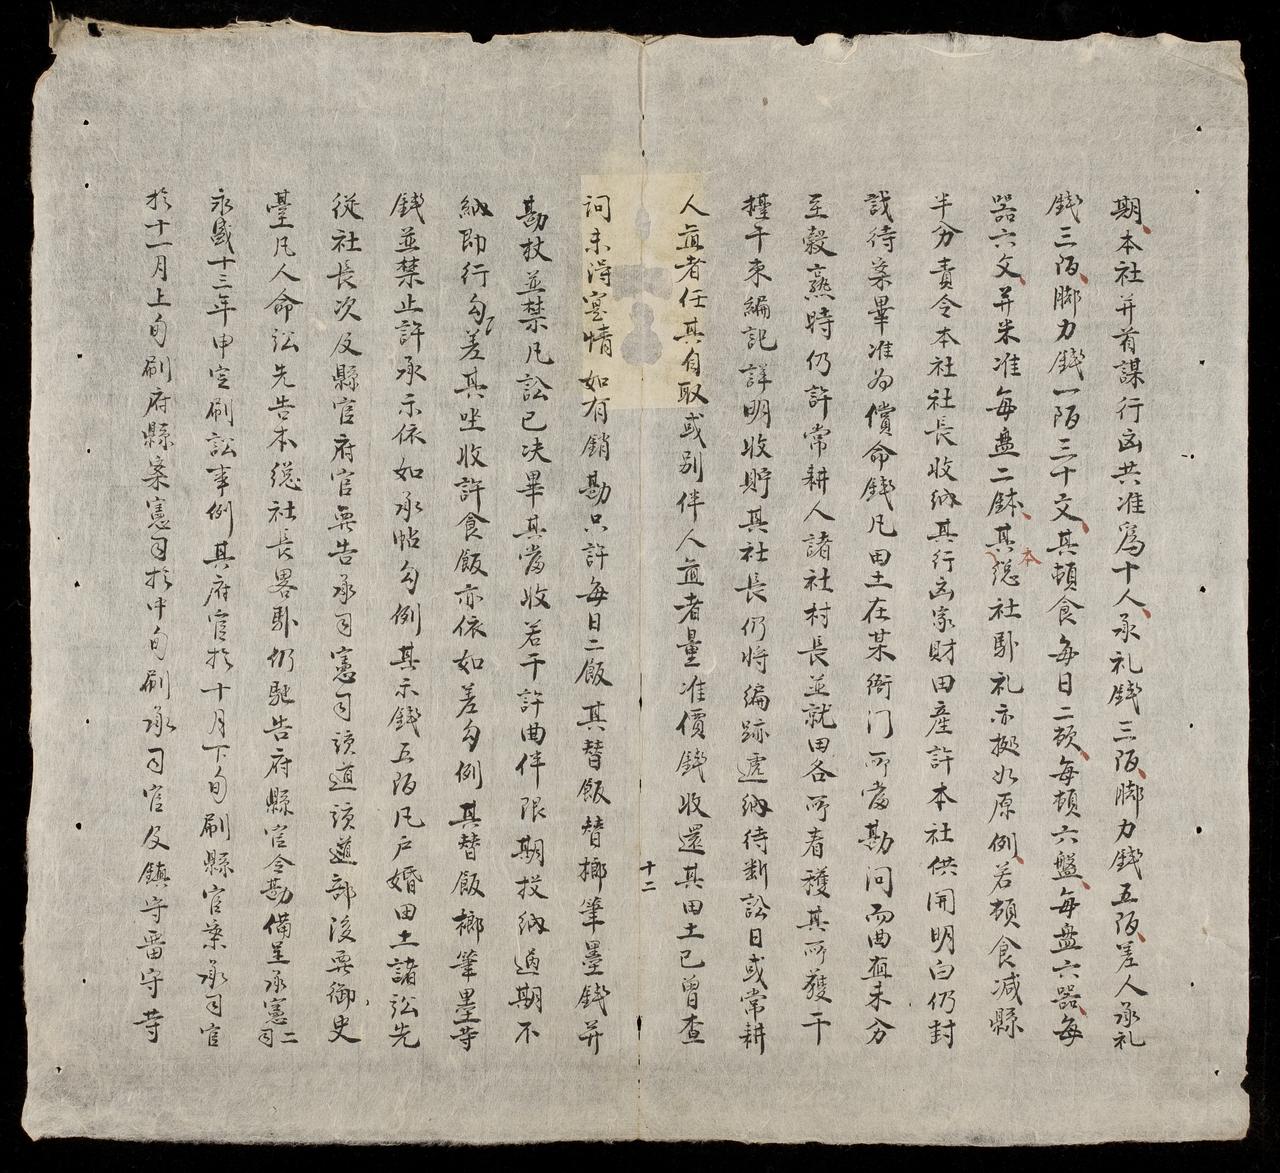 期本社并首謀行凶共准爲十人承礼錢三陌脚力錢五陌差人承礼
錢三陌脚力錢一陌三十文其頓食每日二頓每頓六盤每盘六器每
器六文并米准每盘二鉢其總本社馭礼亦拠如原例若頓食减縣
半分責令本社社長收納其行凶家財田産許本社供開明白仍封
識待案畢准为償命錢凡田土在某衙门所當勘问而曲直未分
至穀熟時仍許常耕人諸社村長並就田各所看穫其所獲干
櫣干束編記詳明收貯其社長仍将編跡遞納待断訟日或常耕
人直者任其自取或别伴人直者量准價錢收還其田土已曾查
十二
词未得寔情如有銷勘只許每日二飯其替飯替榔筆墨錢并
勘杖並禁凡訟已决畢其當收若干許曲伴限期投納過期不
納即行勾差其坐收許食飯亦依如差勾例其替飯榔筆墨等
錢並禁止許承示依如承帖勾例其示錢五陌凡户婚田土諸訟先
從社長次及縣官府官要告承司憲司該道該道部後要御史
臺凡人命訟先告本總社長畧馭仍馳告府縣官令勘備呈承憲二司
永盛十三年申定刷訟事例其府官於十月下旬刷縣官案承司官
於十一月上旬刷府縣案憲司於中旬刷承司官及鎮守畱守等